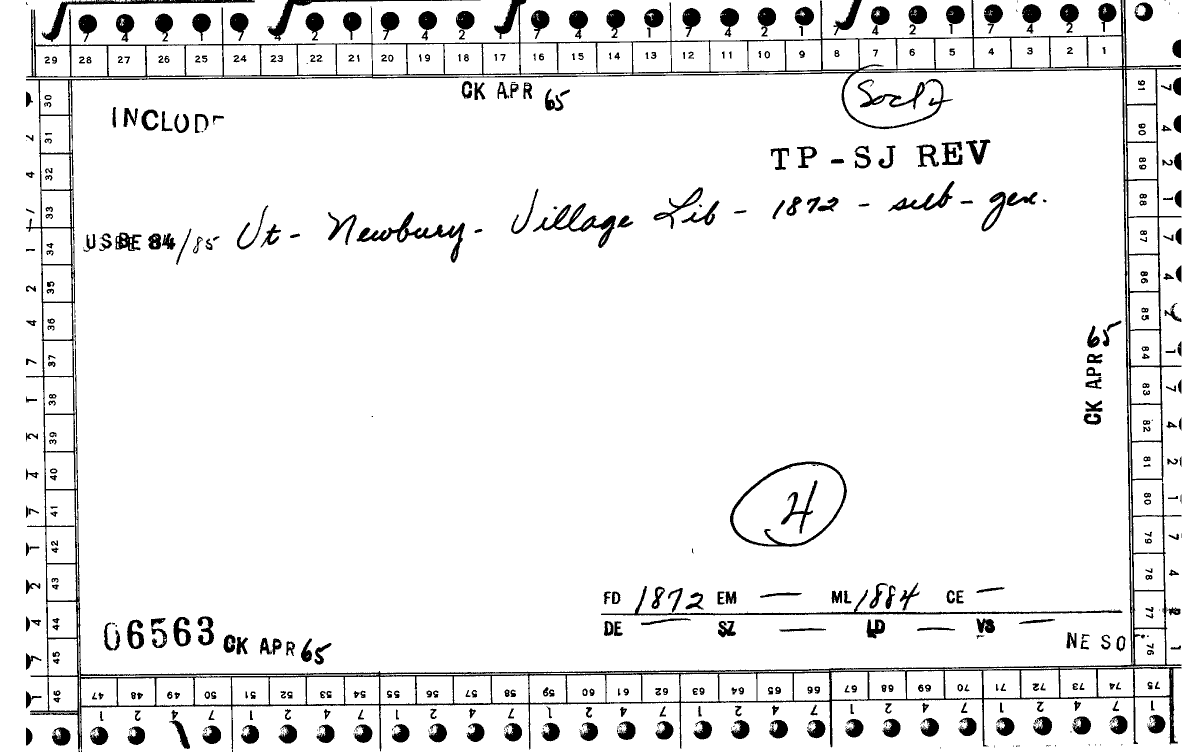 7 4 2 1 7 4 2 1 7 4 2 1 7 4 2 1 7 4 2 1 7 4 2 1
29 28 27 26 25 24 23 22 21 20 19 18 17 16 15 14 13 12 11 10 9 8 7 6 5 4 3 2 1
CK APR 65
INCLUDE
TP-SJ REV
USBE 84/85 Vt - Newbury - Village Lib - 1872 - sub - gen.
CK APR 65
4
FD 1872 EM — ML 1884 CE —
DE — SZ — LD — VS —
06563 CK APR 65
NE SO
30 31 32 33 34 35 36 37 38 39 40 41 42 43 44 45 46
91 90 89 88 87 86 85 84 83 82 81 80 79 78 77 76
47 48 49 50 51 52 53 54 55 56 57 58 59 60 61 62 63 64 65 66 67 68 69 70 71 72 73 74 75
1 2 4 7 1 2 4 7 1 2 4 7 1 2 4 7 1 2 4 7 1 2 4 7 1 2 4 7 1